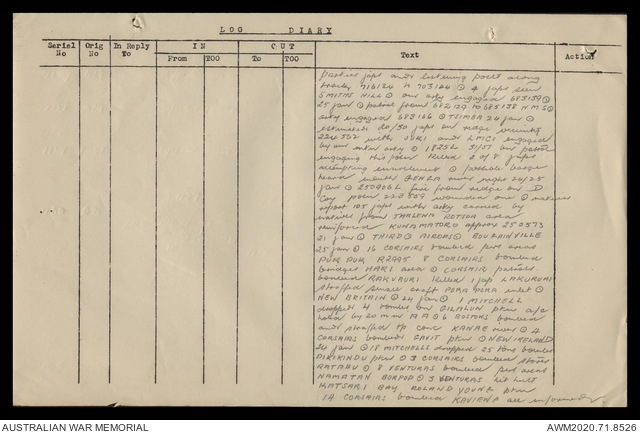 LOG DIARY
Serial No
Orig No
In Reply To
IN
From
TOO
OUT
To
TOO
Text
Action
japs and listening posts along
track 716124 to 703124 ⊙ 4 japs seen
SMITHS HILL ⊙ our arty engaged 683139 ⊙
25 jan ⊙ patrol from 682129 to 685138 NMS ⊙
arty engaged 683166 ⊙ TSIMBA 24 jan ⊙
estimated 20/30 japs on ridge vicinity
with and LMGs engaged
by our mtrs arty ⊙ 1825L 31/51 Bn patrol
engaging this posn killed 2 of 8 japs
attempting encirclement ⊙ possible barge
heard mouth GENGA river night 24/25
jan ⊙ 250906L fire from ridge on D
Coy posn wounded one ⊙ natives
report 105 japs with arty carried by
natives from area
reinforced KUNAMATORO approx 250573
21 jan ⊙ THIRD ⊙ AIROPS ⊙ BOUGAINVILLE
25 jan ⊙ 16 CORSAIRS bombed pers areas
PUK PUK R2995 8 CORSAIRS bombed
bridges HARI area ⊙ CORSAIR patrols
bombed killed 1 jap
strafed small craft PORA PORA inlet ⊙
NEW BRITAIN ⊙ 24 jan ⊙ 1 MITCHELL
dropped 4 bombs on GILALUM ptn a/c
holed by 20 mm AA ⊙ 6 BOSTONS bombed
and strafed tp conc river ⊙ 4
CORSAIRS bombed ptn ⊙ NEW IRELAND
24 jan ⊙ 18 MITCHELLS dropped 25 tons bombs
DIKIKINDU ptn ⊙ 3 CORSAIRS bombed stores
RATABU ⊙ 8 VENTURAS bombed pers areas
NAMATAN BORPOP ⊙ 3 VENTURAS hit huts
KATSARI BAY ROLAND YOUNG ptn
14 CORSAIRS bombed KAVIENG all informed
AUSTRALIAN WAR MEMORIAL
AWM2020.71.8526